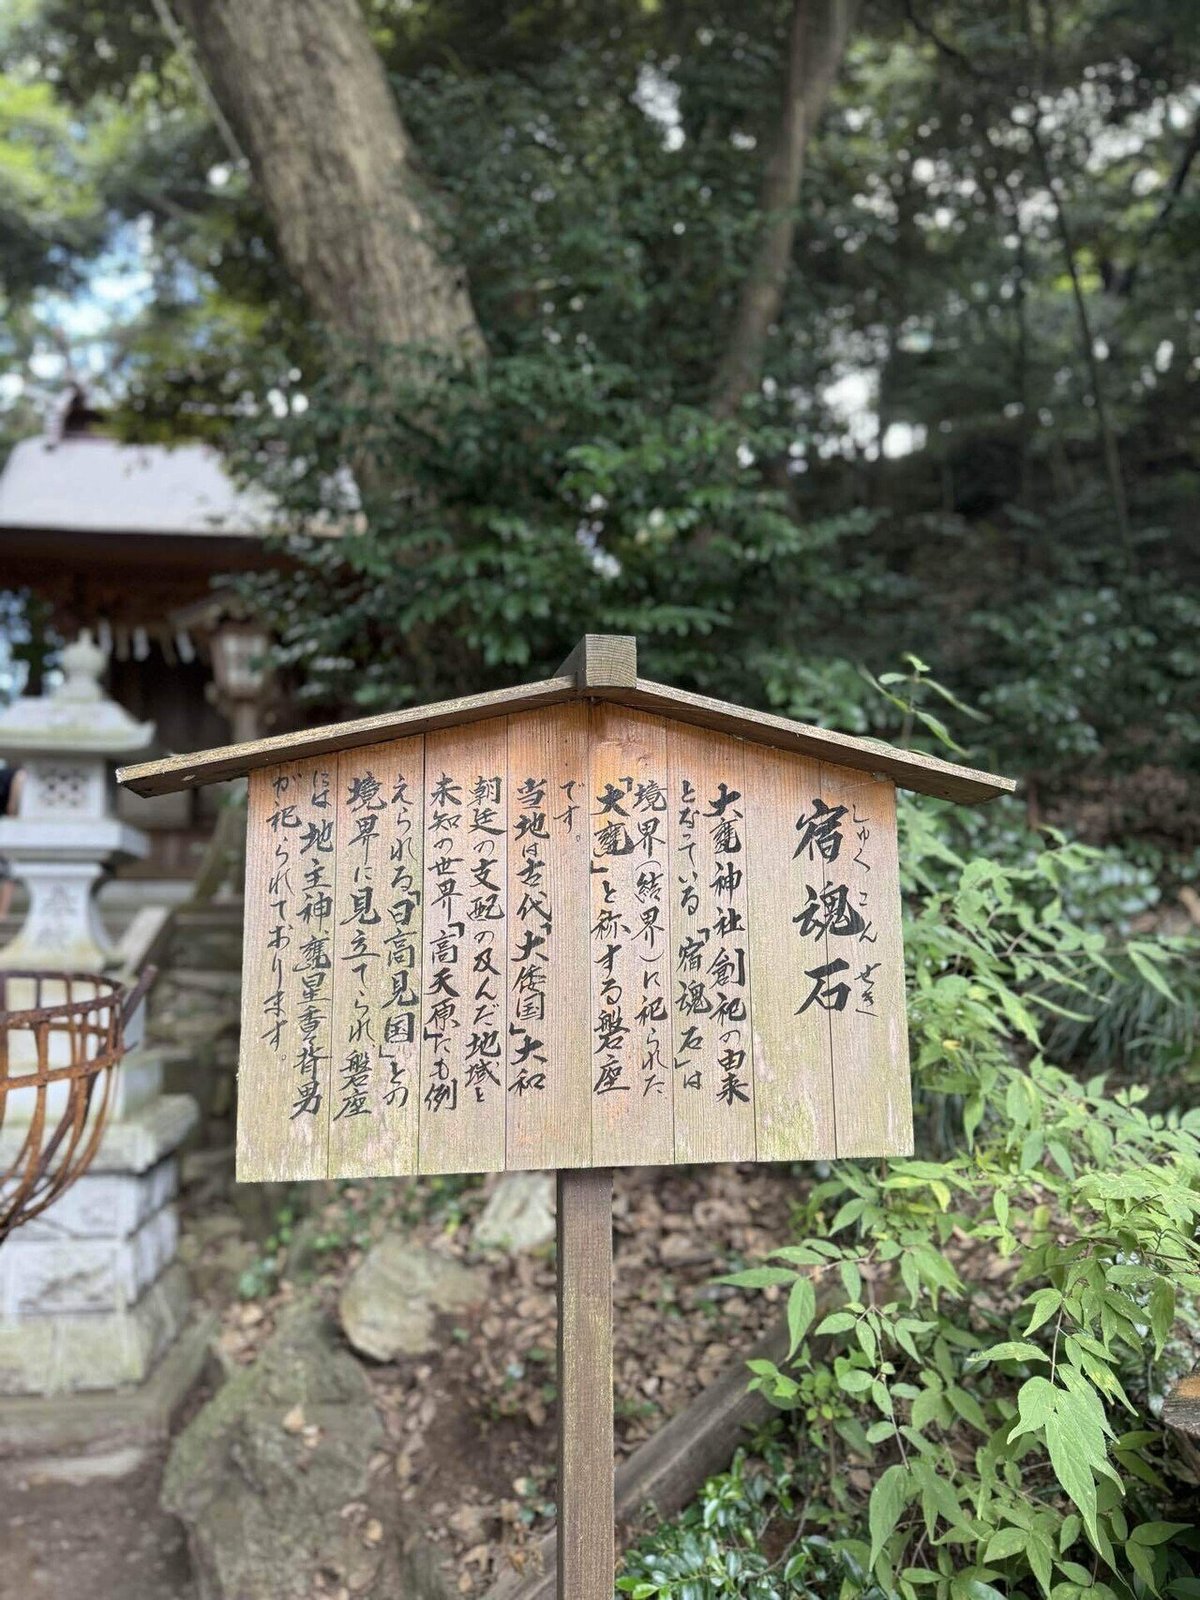 宿魂石
しゅくこんせき
大甕神社創祀の由来
となっている「宿魂石」は
境界(結界)に祀られた
「大甕」と称する磐座
です。
当地は古代「大倭国」大和
朝廷の支配の及んだ地域と
未知の世界「高天原」にも例
えられる「日高見国」との
境界に見立てられ、磐座
には地主神、甕星香々背男
が祀られております。